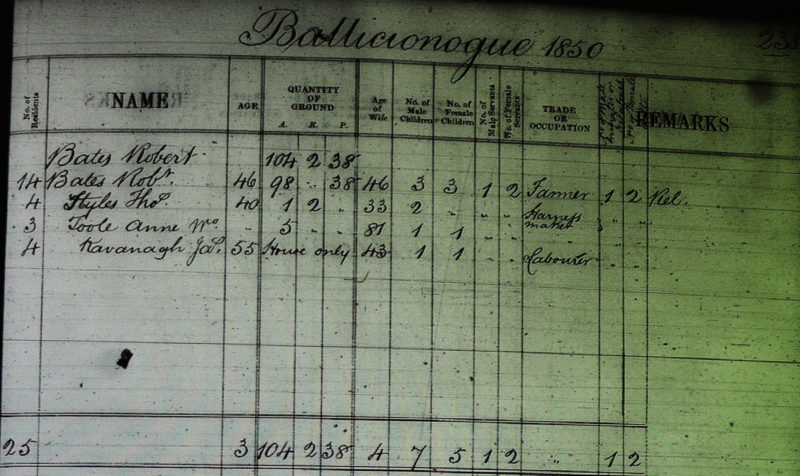 Ballicionogue 1850 235
No. of Residents NAME AGE QUANTITY OF GROUND A. R. P. Age of Wife No. of Male Children No. of Female Children No. of Male Servants No. of Female Servants TRADE OR OCCUPATION REMARKS
Bates Robert 104 2 38
14 Bates Robt. 46 98 .. 38 46 3 3 1 2 Farmer 1 2 Kiel.
4 Styles Thos. 40 1 2 " 33 2 " " " Harness maker " "
3 Toole Anne Wo " 5 " " 81 1 1 " " " "
4 Kavanagh Jas. 55 House only 43 1 1 " " Labourer " "
25 3 104 2 38 4 7 5 1 2 " 1 2